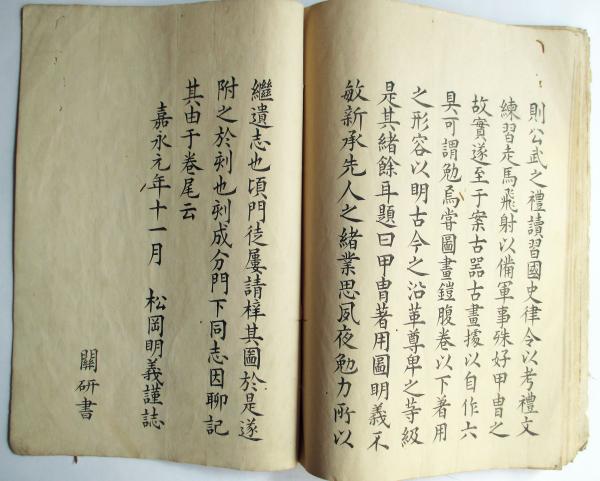 則公武之禮讀習國史律令以考禮文
練習走馬飛射以備軍事殊好甲冑之
故實遂至于案古器古畫據以自作六
具可謂勉焉嘗圖畫鎧腹卷以下著用
之形容以明古今之沿革尊卑之等級
是其緒餘耳題曰甲冑著用圖明義不
敏新承先人之緒業思夙夜勉力所以
繼遺志也頃門徒屢請梓其圖於是遂
附之於剞也剞成分門下同志因聊記
其由于卷尾云
嘉永元年十一月　松岡明義謹誌
關研書